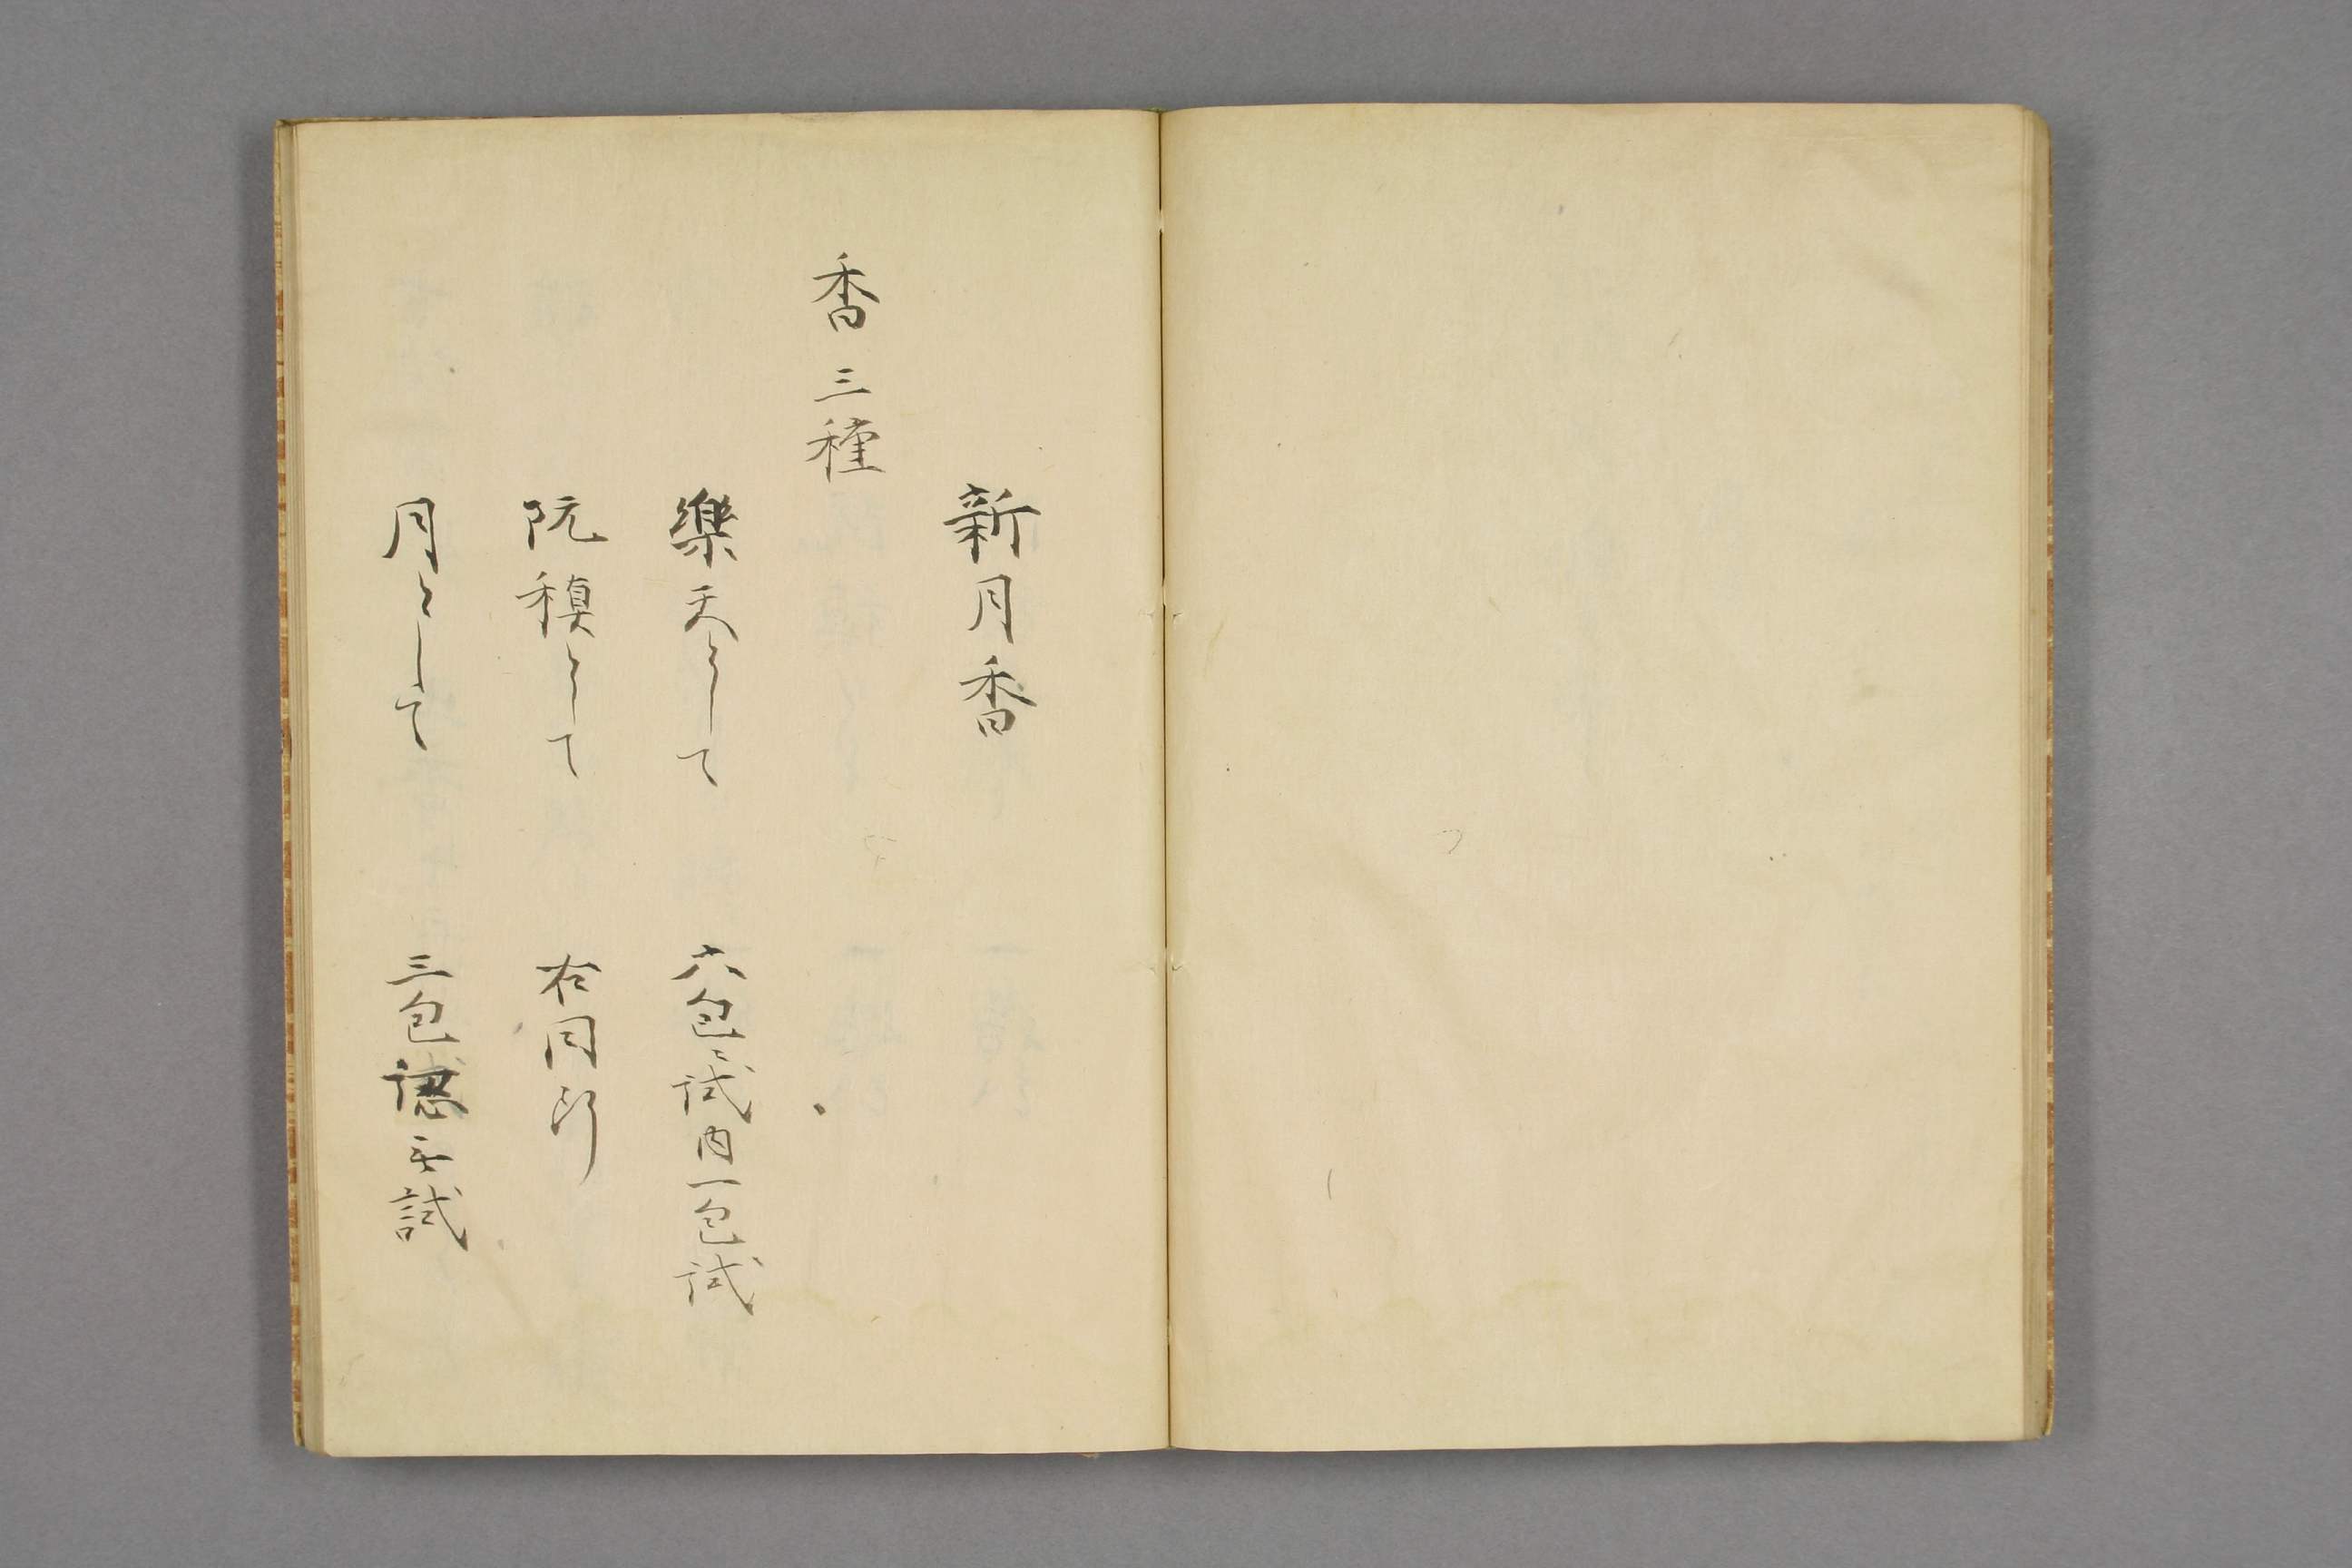 新月香
香三種
樂天として 六包ニ試内一包試
阮稹として 右同断
月として 三包認無試